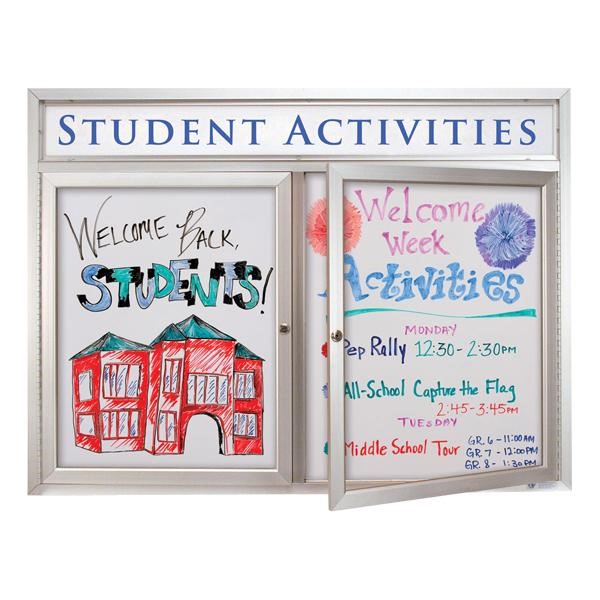 STUDENT ACTIVITIES
WELCOME BACK,
STUDENTS!
Welcome
Week
Activities
MONDAY
Pep Rally 12:30 - 2:30PM
All-School Capture the Flag
2:45 - 3:45PM
TUESDAY
Middle School Tour
GR. 6 - 11:00AM
GR. 7 - 12:00PM
GR. 8 - 1:30PM